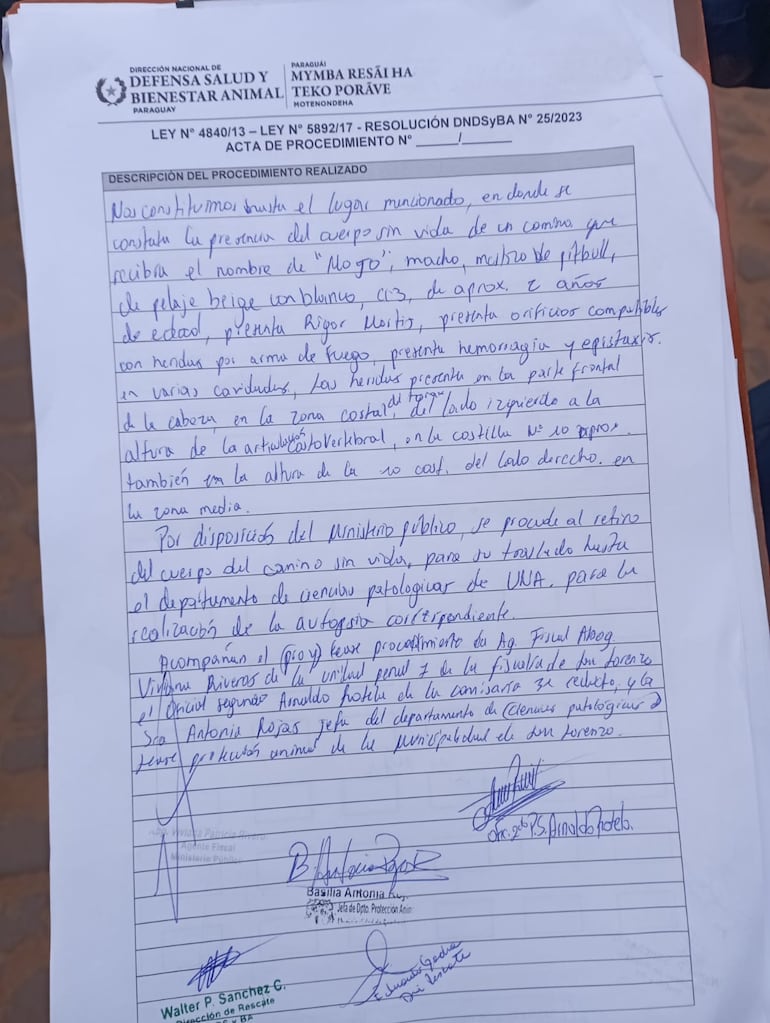 DIRECCIÓN NACIONAL DE
DEFENSA SALUD Y
BIENESTAR ANIMAL
PARAGUAY
PARAGUÁI
MYMBA RESÃI HA
TEKO PORÃVE
MOTENONDEHA
LEY N° 4840/13 – LEY N° 5892/17 - RESOLUCIÓN DNDSyBA N° 25/2023
ACTA DE PROCEDIMIENTO N° ______/______
DESCRIPCIÓN DEL PROCEDIMIENTO REALIZADO
Nos constituimos hasta el lugar mencionado, en donde se
constata la presencia del cuerpo sin vida de un canino que
recibia el nombre de "Mogo", macho, mestizo de pitbull,
de pelaje beige con blanco, cc3, de aprox. 2 años
de edad, presenta Rigor Mortis, presenta orificios compatibles
con heridas por arma de fuego, presenta hemorragia y epistaxis.
en varias cavidades, Las heridas presenta en la parte frontal
de la cabeza, en la zona costal, del torax del lado izquierdo a la
altura de la articulación costovertebral, en la costilla N° 10 aprox.
también en la altura de la 10 cost. del lado derecho. en
la zona media.
Por disposición del Ministerio público, se procede al retiro
del cuerpo del canino sin vida, para su traslado hasta
el departamento de ciencias patologicas de UNA. para la
realización de la autopsia correspondiente.
Acompañan el procedimiento la Ag. Fiscal Abog.
Viviana Riveros de la unidad penal 7 de la fiscalia de San Lorenzo
el Oficial segundo Arnaldo Rotela de la comisaría 3ra reducto, y la
Sra Antonia Rojas Jefa del departamento de (Ciencias patológicas)
protección animal de la Municipalidad de San Lorenzo.
Abg. Viviana Patricia Rivero
Agente Fiscal
Ministerio Público
P.S. Arnaldo Rotela.
B. Antonia Rojas
Basilia Antonia
Jefa de Dpto. Protección Anim
Walter P. Sanchez C.
Dirección de Rescate
Eduardo